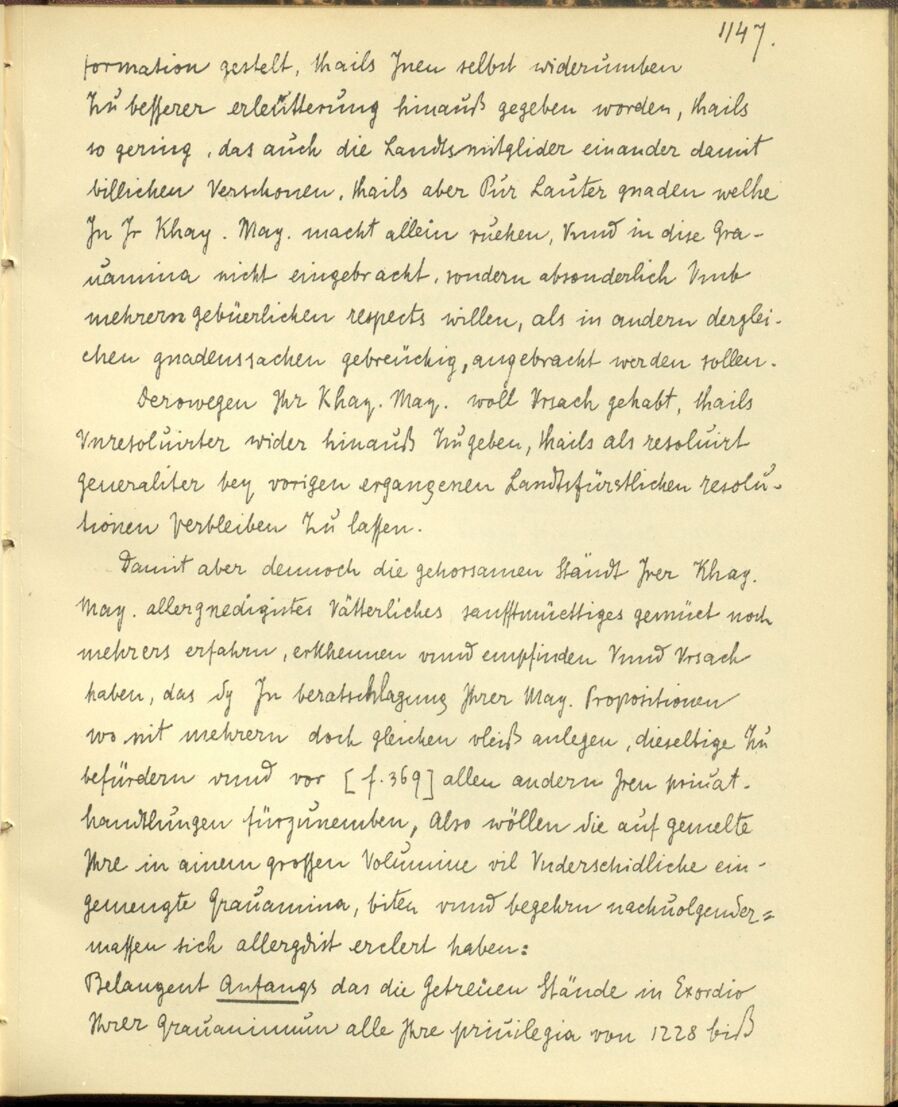 1147.
formation gestelt, thails Jnen selbst widerumben
Zu besserer erleütterung hinauß gegeben worden, thails
so gering, das auch die Landtsmitglider einander damit
billichen Verschonen, thails aber Pur Lauter gnaden welhe
Jn Jr Khay. May. macht allein ruehen, Vnnd in dise Gra-
uamina nicht eingebracht, sondern absonderlich Vmb
mehrern gebüerlichen respects willen, als in andern derglei-
chen gnadenssachen gebreüchig, angebracht werden sollen.
Derowegen Jhr Khay. May. woll Vrsach gehabt, thails
Vnresoluirter wider hinauß Zugeben, thails als resoluirt
generaliter bey vorigen ergangenen Landtsfürstlichen resolu-
tionen Verbleiben Zu lassen.
Damit aber dennoch die gehorsamen Ständt Jrer Khay.
May. allergnedigistes Vätterliches sanfftmüettiges gemüet noch
mehrers erfahrn, erkhennen vnnd empfinden Vnnd Vrsach
haben, das Sy Jn beratschlagung Jhrer May. Propositionen
wo nit mehrern doch gleichen vleiß anlegen, dieselbige Zu
befürdern vnnd vor [f. 369] allen andern Jren priuat-
handlungen fürzunemben, Also wöllen die auf gemelte
Jhre in ainem grossen Volumine vil Vnderschidliche ein-
gemengte Grauamina, biten vnnd begehrn nachuolgender=
massen sich allergdist erclert haben:
Belangent Anfangs das die Getreüen Stände in Exordio
Jhrer Grauaminum alle Jhre priuilegia von 1228 biß